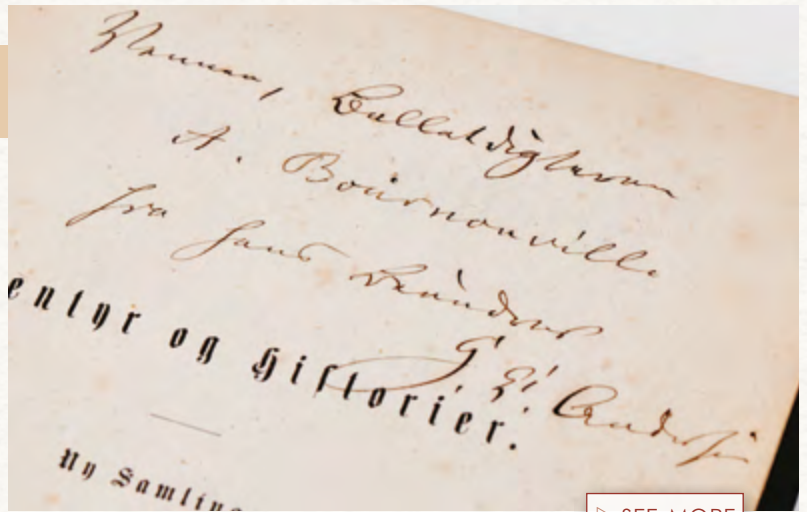 Vennen, Balletdigteren
A. Bournonville
fra hans beundrer
H. C. Andersen
entyr og Historier.
Ny Samling
▷ SEE MORE